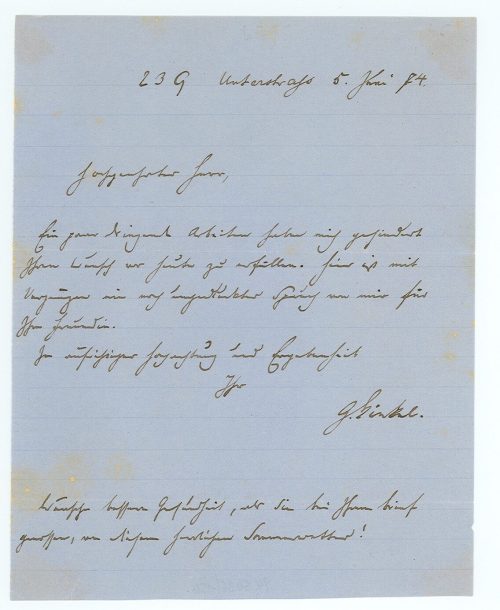 239 Unterstraß 5. Juni 74.
Hochgeehrter Herr,
Ein paar dringende Arbeiten haben mich gehindert
Ihren Wunsch vor heute zu erfüllen. Hier ist mit
Vergnügen ein noch ungedruckter Spruch von mir für
Ihre Freundin.
In aufrichtiger Hochachtung und Ergebenheit
Ihr
G. Kinkel.
Wünsche bessere Gesundheit, als Sie bei Ihrem Brief
genossen, von diesem herrlichen Sommerwetter!